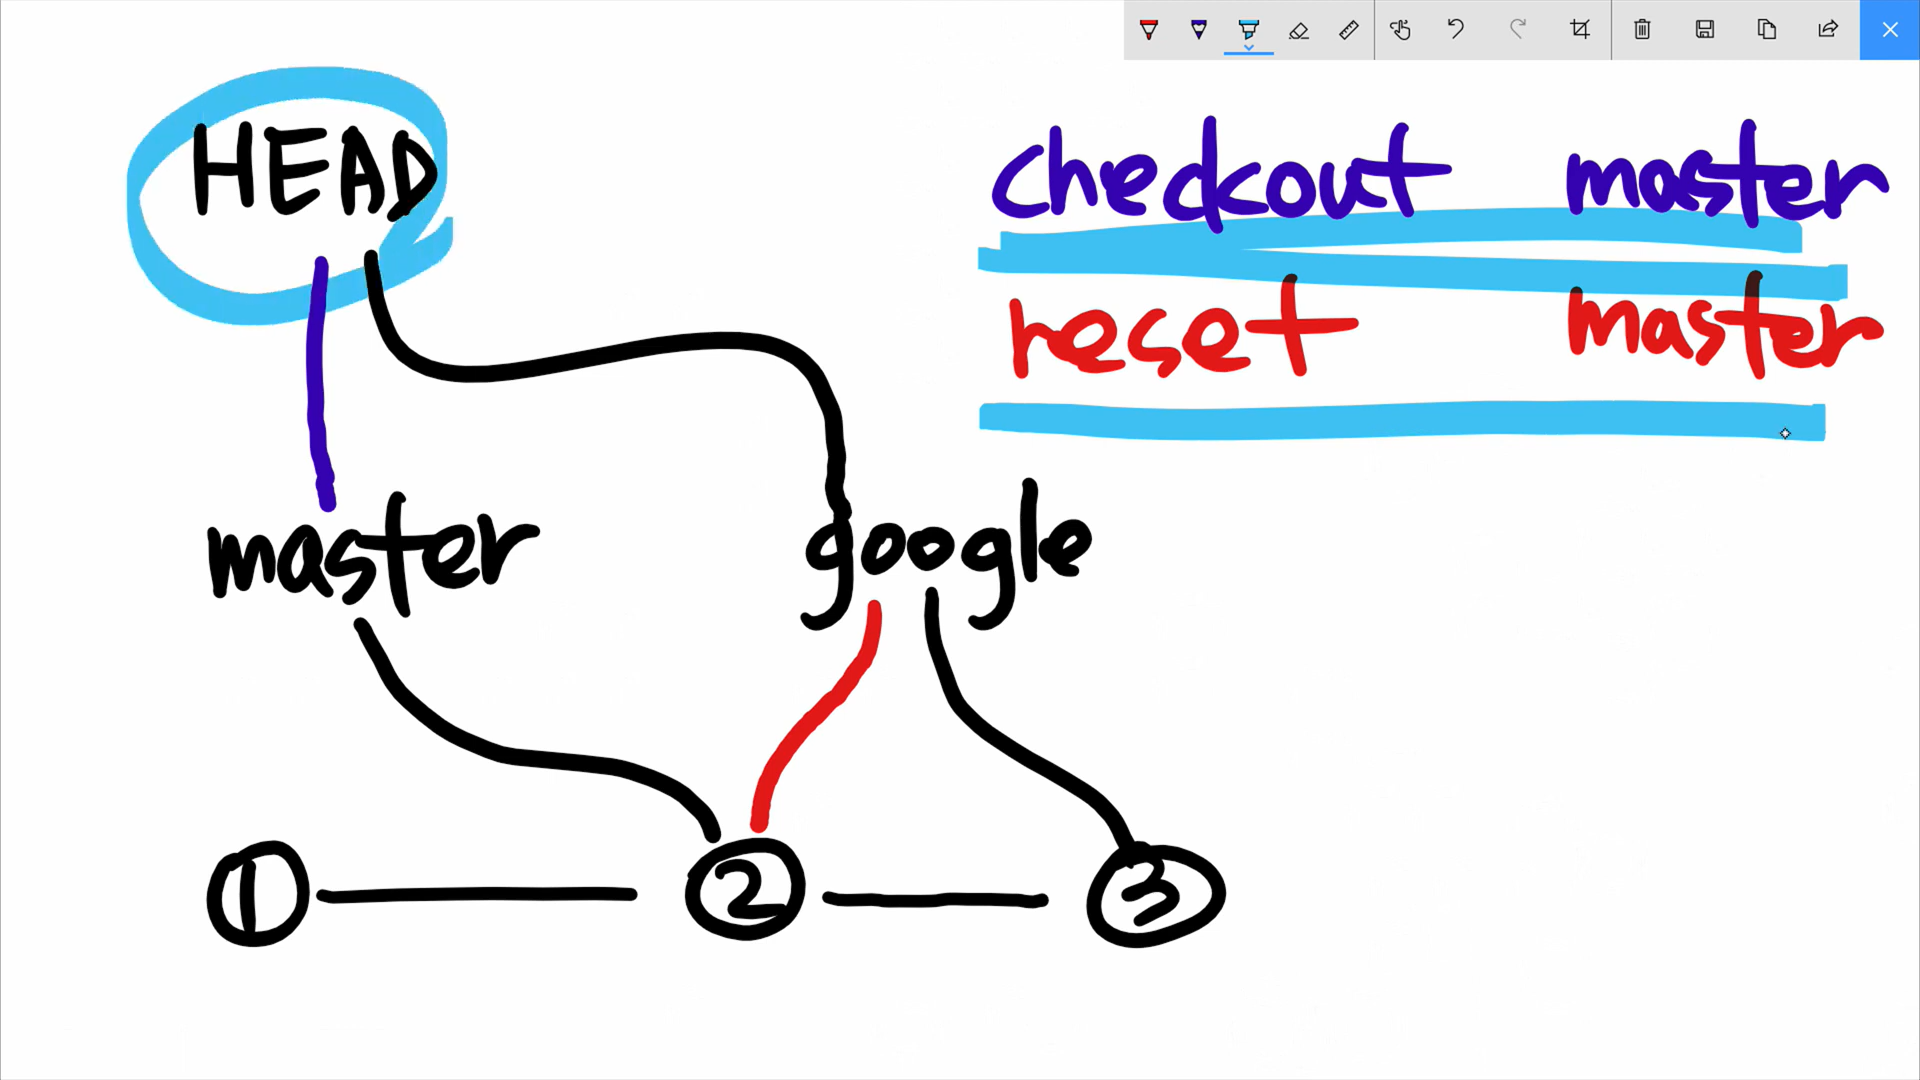 HEAD
checkout master
reset master
master google
1 2 3